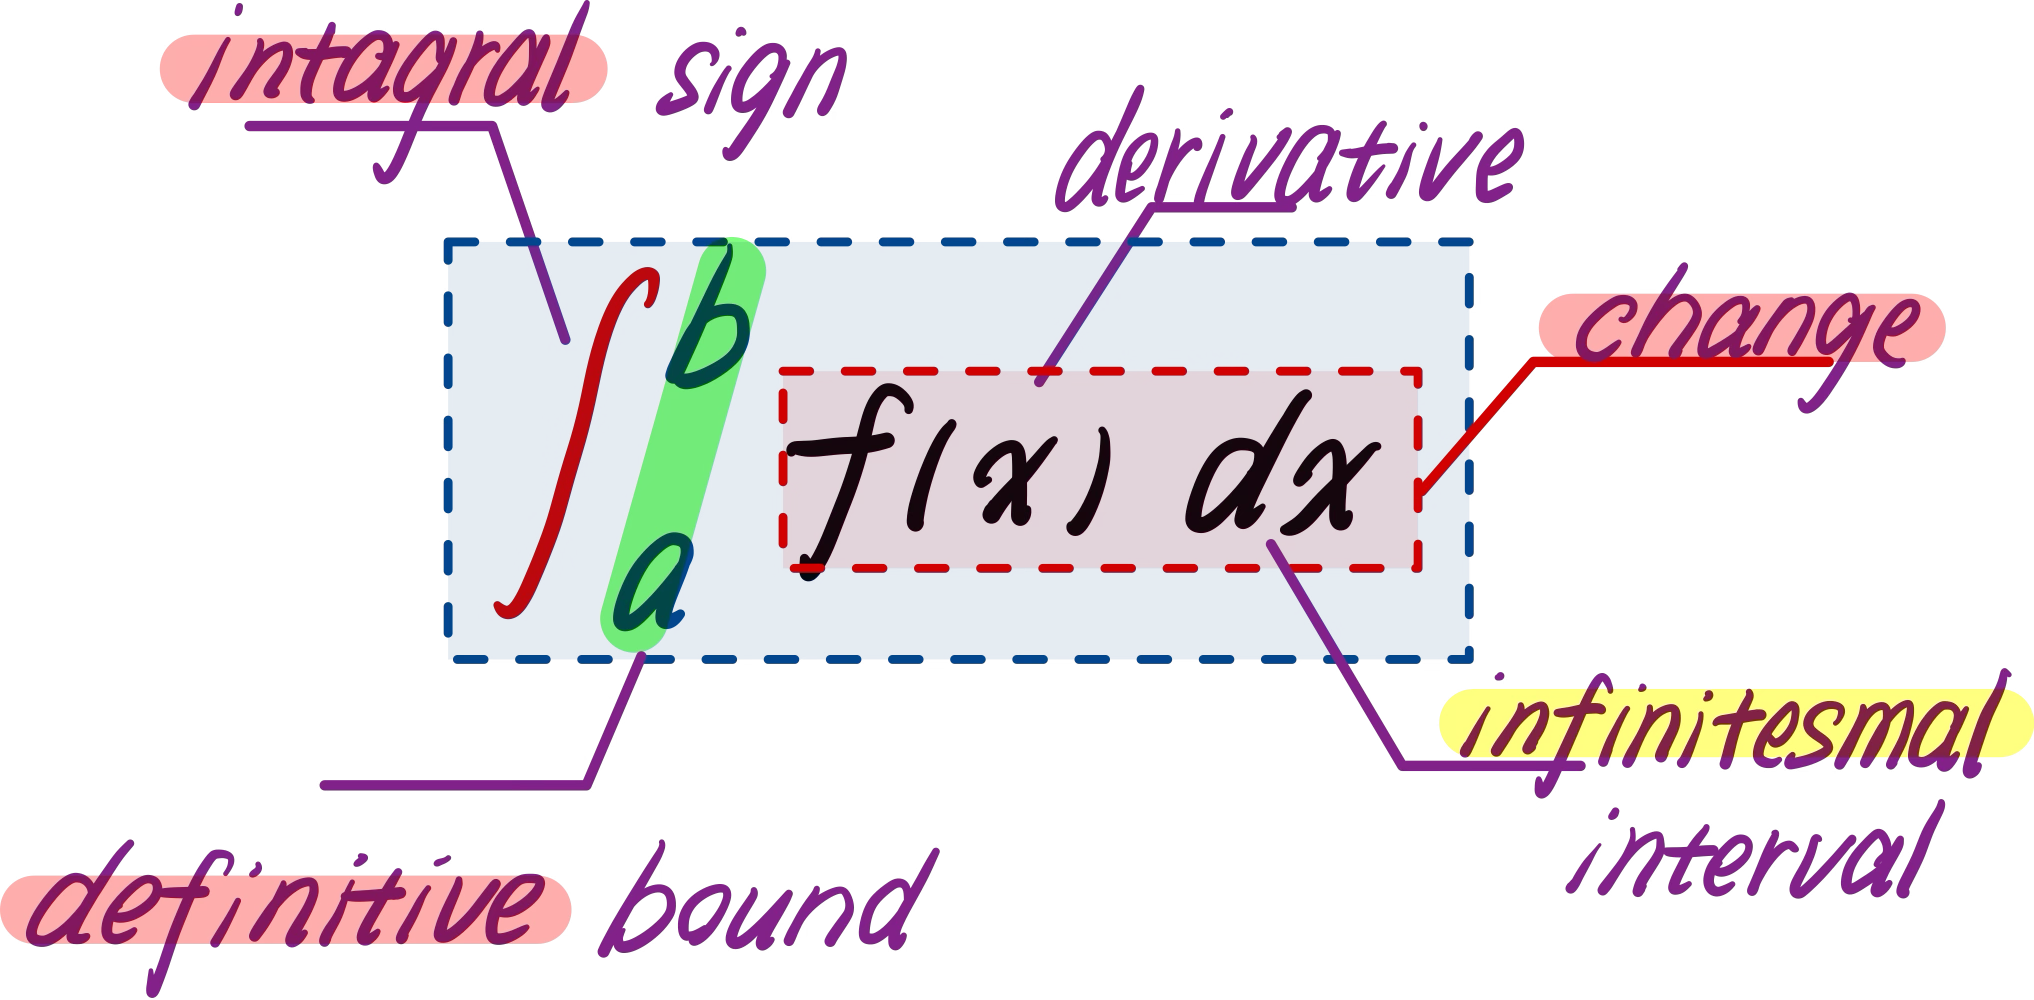 intagral sign
derivative
change
∫ b
f(x) dx
a
infinitesmal
interval
definitive bound